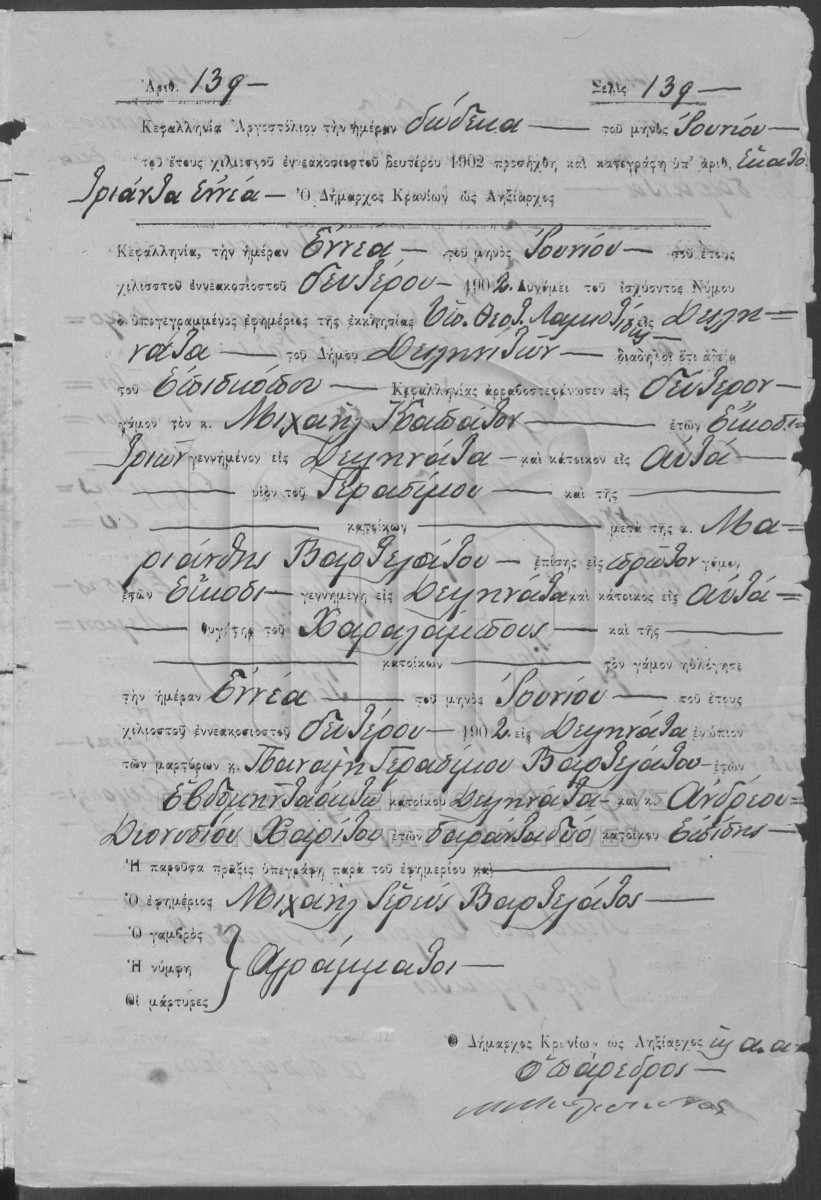 Ἀριθ. 139 — Σελὶς 139 —
Κεφαλληνία Ἀργοστόλιον τὴν ἡμέραν δώδεκα — τοῦ μηνὸς Ἰουνίου —
τοῦ ἔτους χιλιοστοῦ ἐνεακοσιοστοῦ δευτέρου 1902 προσήχθη καὶ κατεγράφη ὑπ' ἀριθ. Εκατο
τριάντα ἐννέα — Ὁ Δήμαρχος Κρανίων ὡς Ληξίαρχος
Κεφαλληνία, τὴν ἡμέραν Ἐννέα — τοῦ μηνὸς Ἰουνίου — τοῦ ἔτους
χιλιοστοῦ ἐννεακοσιοστοῦ δευτέρου — 1902. Δυνάμει τοῦ ἰσχύοντος Νόμου
ὁ ὑπογεγραμμένος ἐφημέριος τῆς ἐκκλησίας Ὑπ. Θεοτ. εἰς Διλη=
νάτα — τοῦ Δήμου Διληνιτῶν — διαδηλοῖ ὅτι ἀδείᾳ
τοῦ Ἐπισκόπου — Κεφαλληνίας ἀρραβοστεφάνωσεν εἰς δεύτερον —
γάμον τὸν κ. Μιχαὴλ Καπάτον — ἐτῶν Εἴκοσι=
τριῶν γεννημένον εἰς Διληνάτα — καὶ κάτοικον εἰς αὐτά —
— υἱὸν τοῦ Γερασίμου — καὶ τῆς —
— κατοίκων — μετὰ τῆς κ. Μα=
ριάνθης Βαρτελάτου — ἐπίσης εἰς πρῶτον γάμον,
ἐτῶν Εἴκοσι — γεννημένη εἰς Διληνάτα καὶ κάτοικος εἰς αὐτά=
— θυγάτηρ τοῦ Χαραλάμπους — καὶ τῆς —
— κατοίκων — τὸν γάμον ηὐλόγησε
τὴν ἡμέραν Ἐννέα — τοῦ μηνὸς Ἰουνίου — τοῦ ἔτους
χιλιοστοῦ ἐννεακοσιοστοῦ δευτέρου — 1902. εἰς Διληνάτα ἐνώπιον
τῶν μαρτύρων κ. Παναγὴ Γερασίμου Βαρτελάτου — ἐτῶν
Ἑβδομήντα κατοίκου Διληνάτα — καὶ κ. Ἀνδρέου=
Διονυσίου Χαρίτου ἐτῶν σαράντα δύο κατοίκου Ἐπίσης —
Ἡ παροῦσα πρᾶξις ὑπεγράφη παρὰ τοῦ ἐφημερίου καὶ —
Ὁ ἐφημέριος Μιχαὴλ Ἱερεὺς Βαρτελάτος —
Ὁ γαμβρὸς
Ἡ νύμφη Ἀγράμματοι —
Οἱ μάρτυρες
Ὁ Δήμαρχος Κρανίων ὡς Ληξίαρχος κ. α. α.
ὁ πάρεδρος —